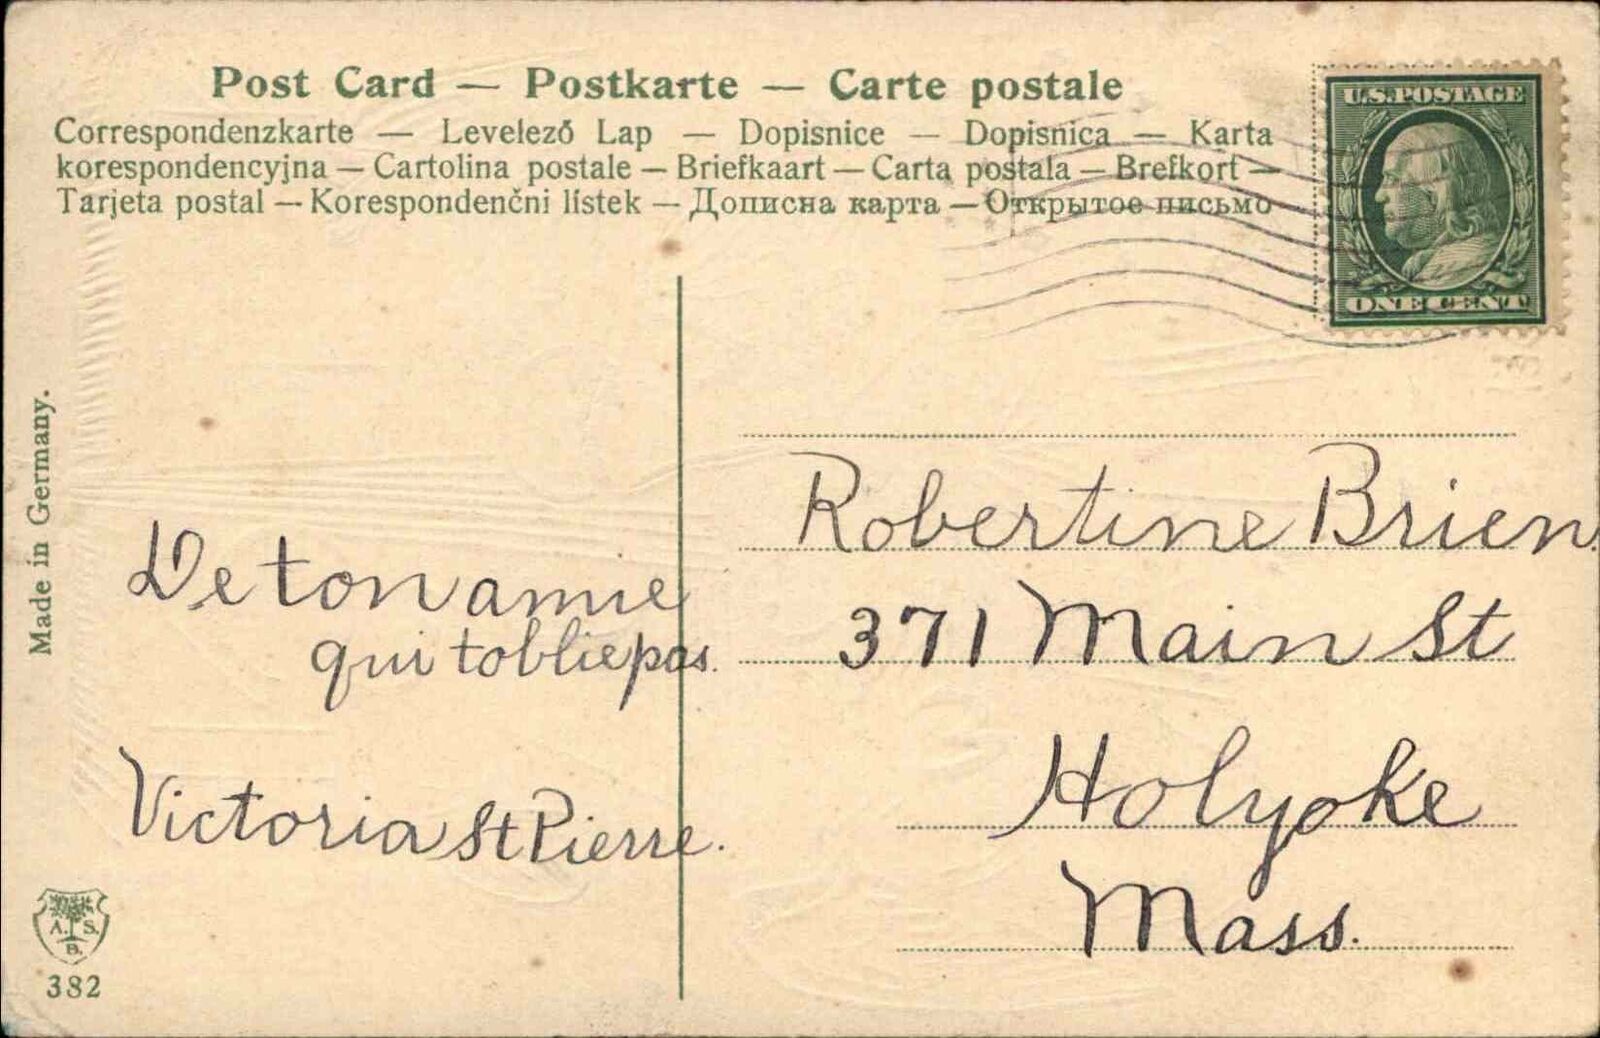 Post Card — Postkarte — Carte postale
Correspondenzkarte — Levelező Lap — Dopisnice — Dopisnica — Karta
korespondencyjna — Cartolina postale — Briefkaart — Carta postala — Brefkort —
Tarjeta postal — Korespondenčni lístek — Дописна карта — Открытое письмо
U.S. POSTAGE
ONE CENT
Made in Germany.
De ton amie
qui toblie pas.
Victoria St Pierre.
Robertine Brien
371 Main St
Holyoke
Mass.
A. S.
B.
382